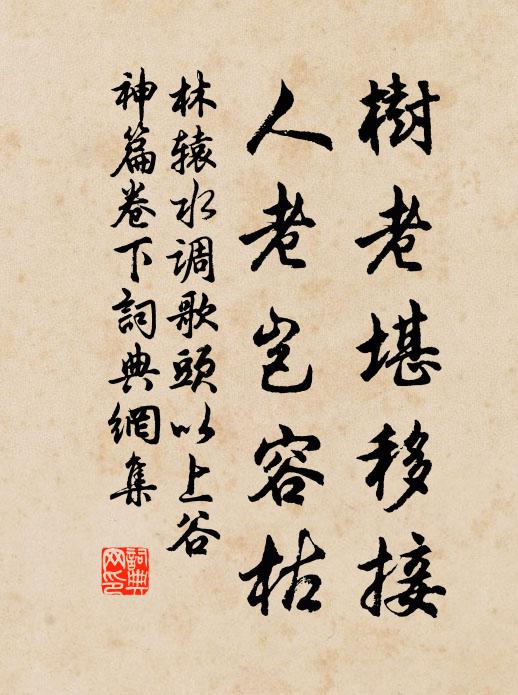 樹老堪移接
人老岂容枯
林辕水调歌頭以上谷
神篇卷下詞典網集
詞典网印